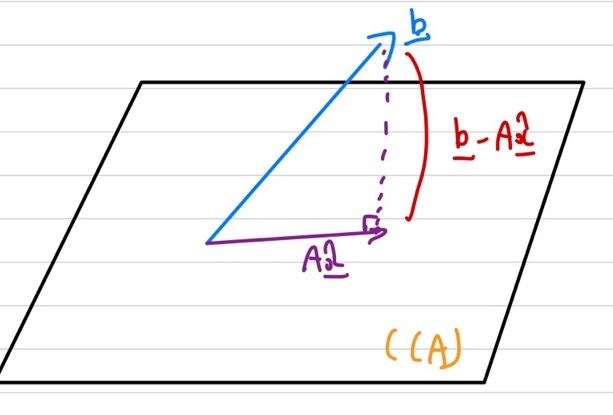 b
b - Ax̂
Ax̂
C(A)